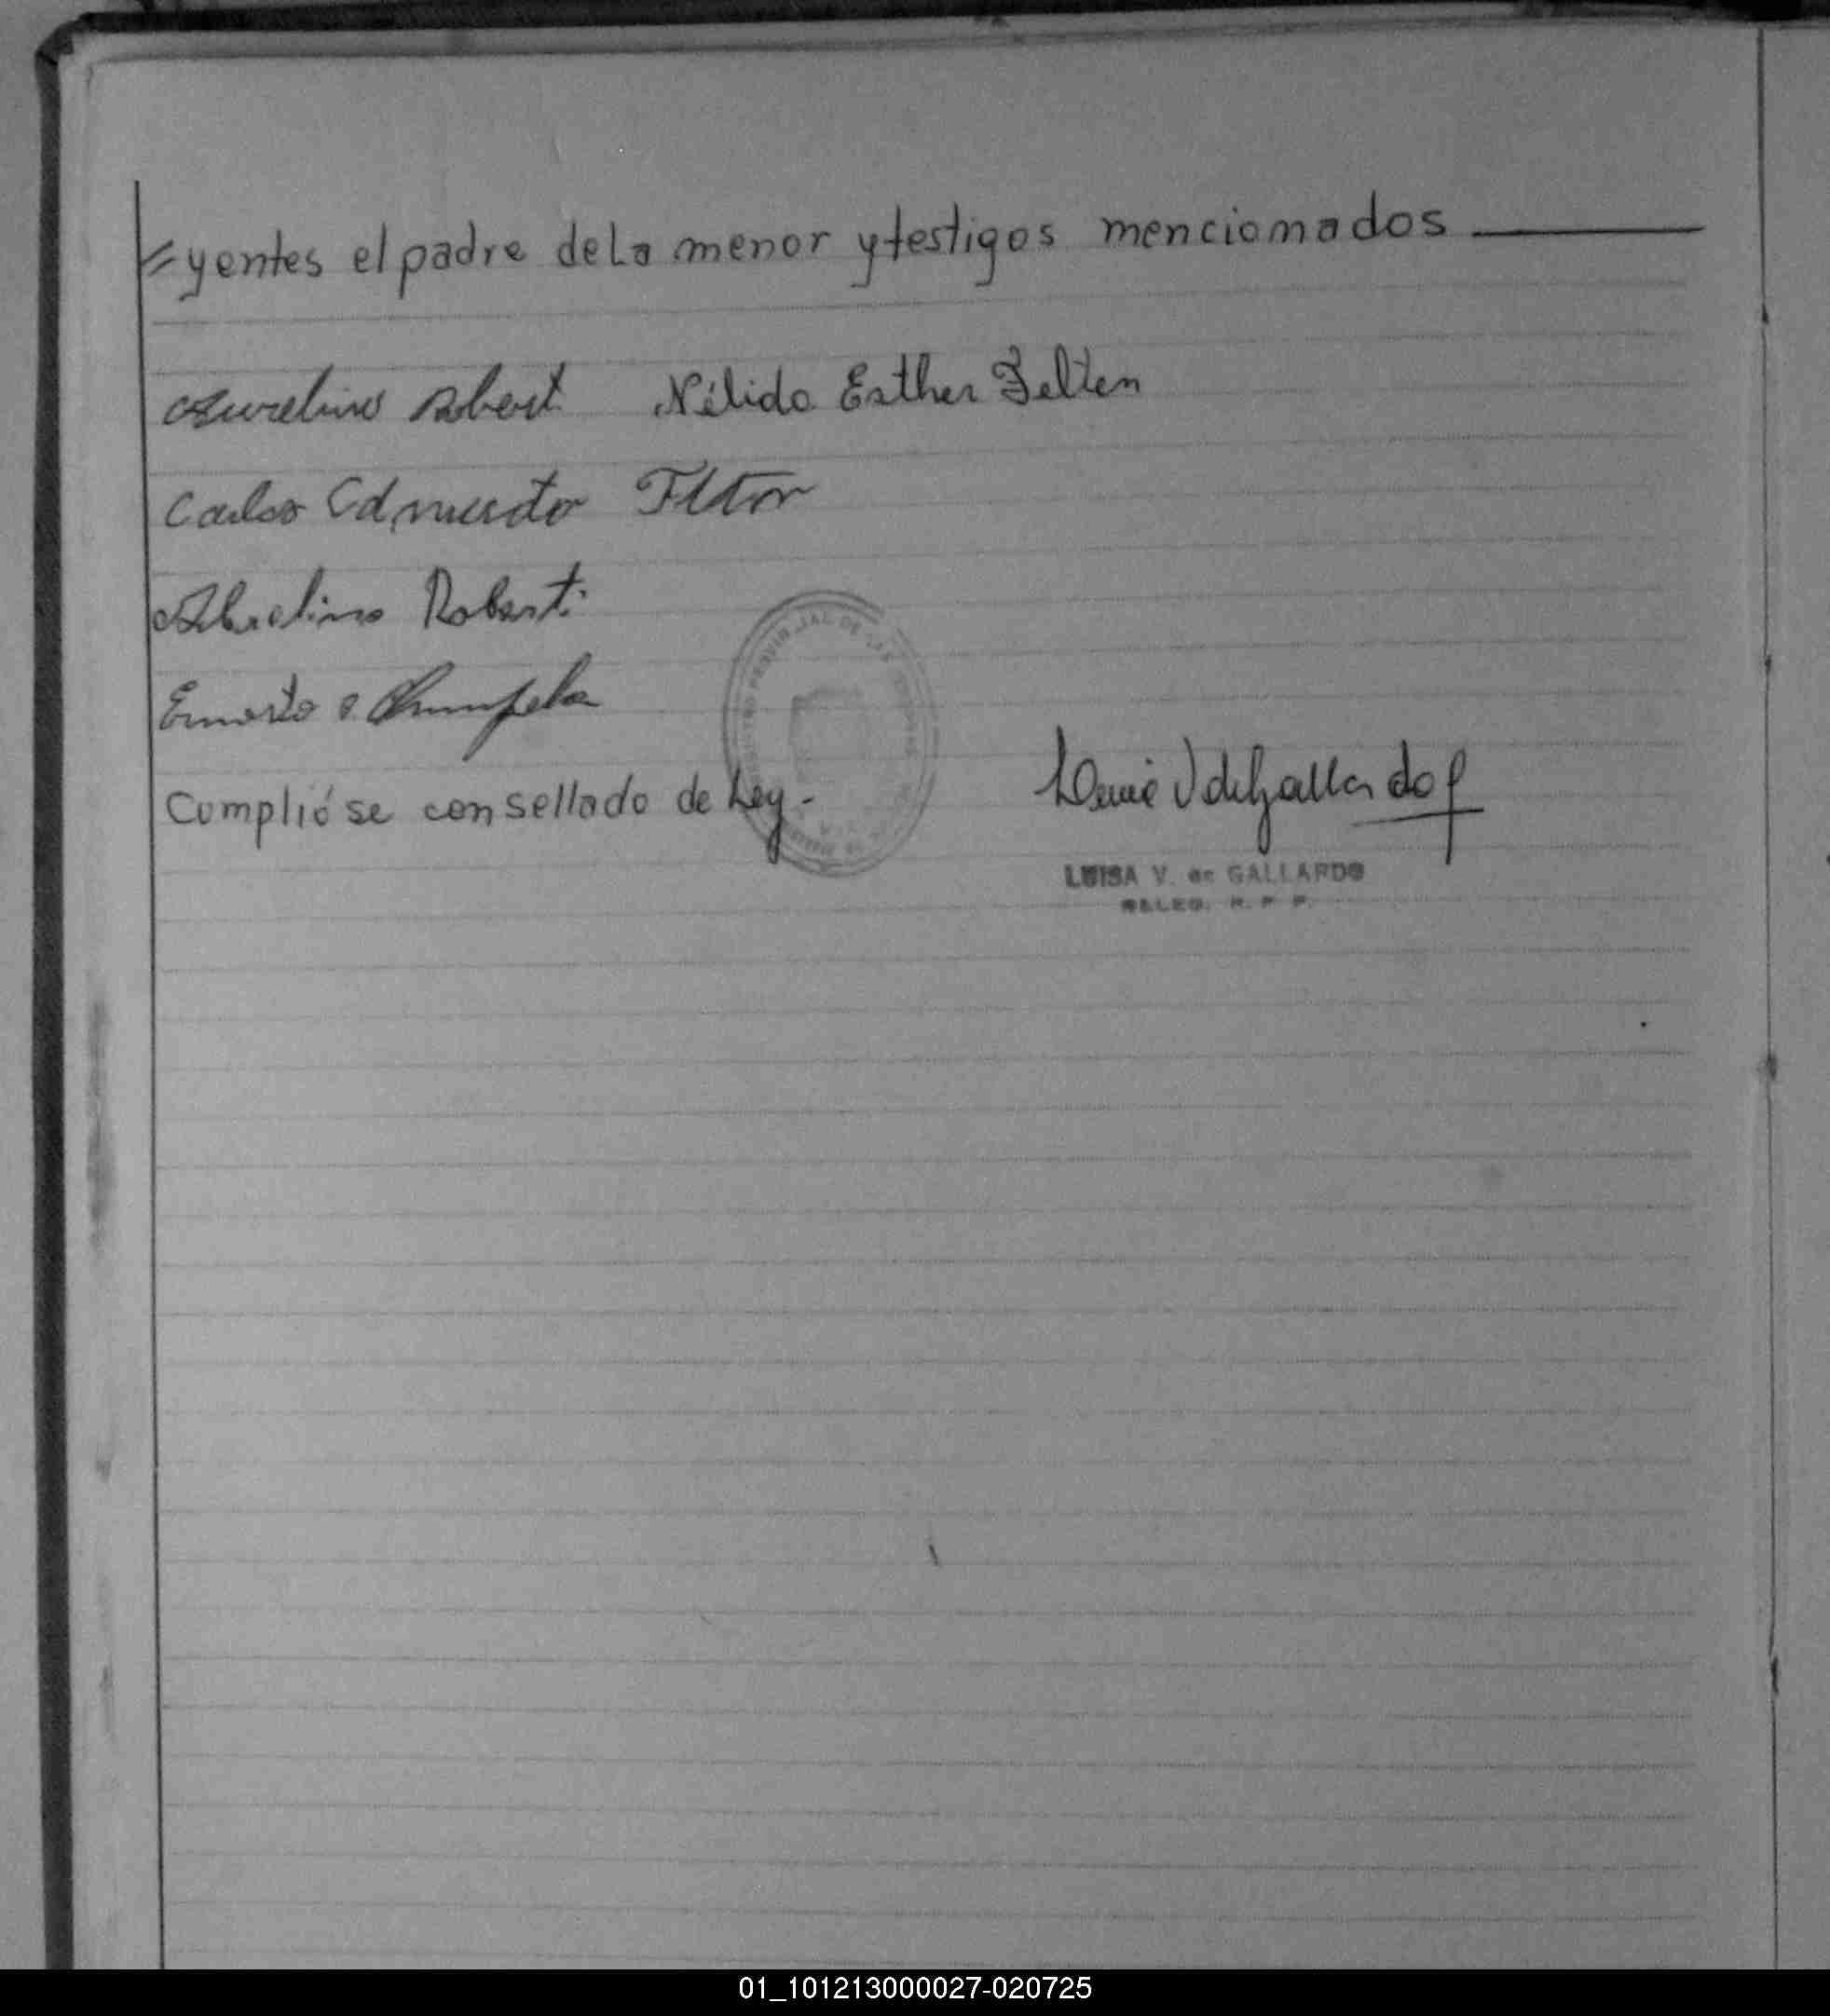 =yentes el padre de la menor y testigos mencionados
Aurelino Robert Nélida Esther Felten
Carlos Edmundo
Robert
Ernesto
Cumplióse con sellado de Ley.-
Luisa V de Gallardo
LUISA V. de GALLARDO
DE LAS
01_101213000027-020725